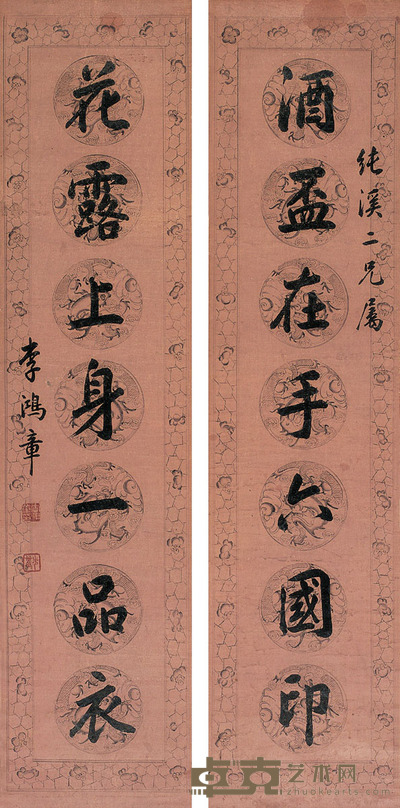 純溪二兄屬
酒盃在手六國印
花露上身一品衣
李鴻章
卓克艺术网
www.zhuokearts.com